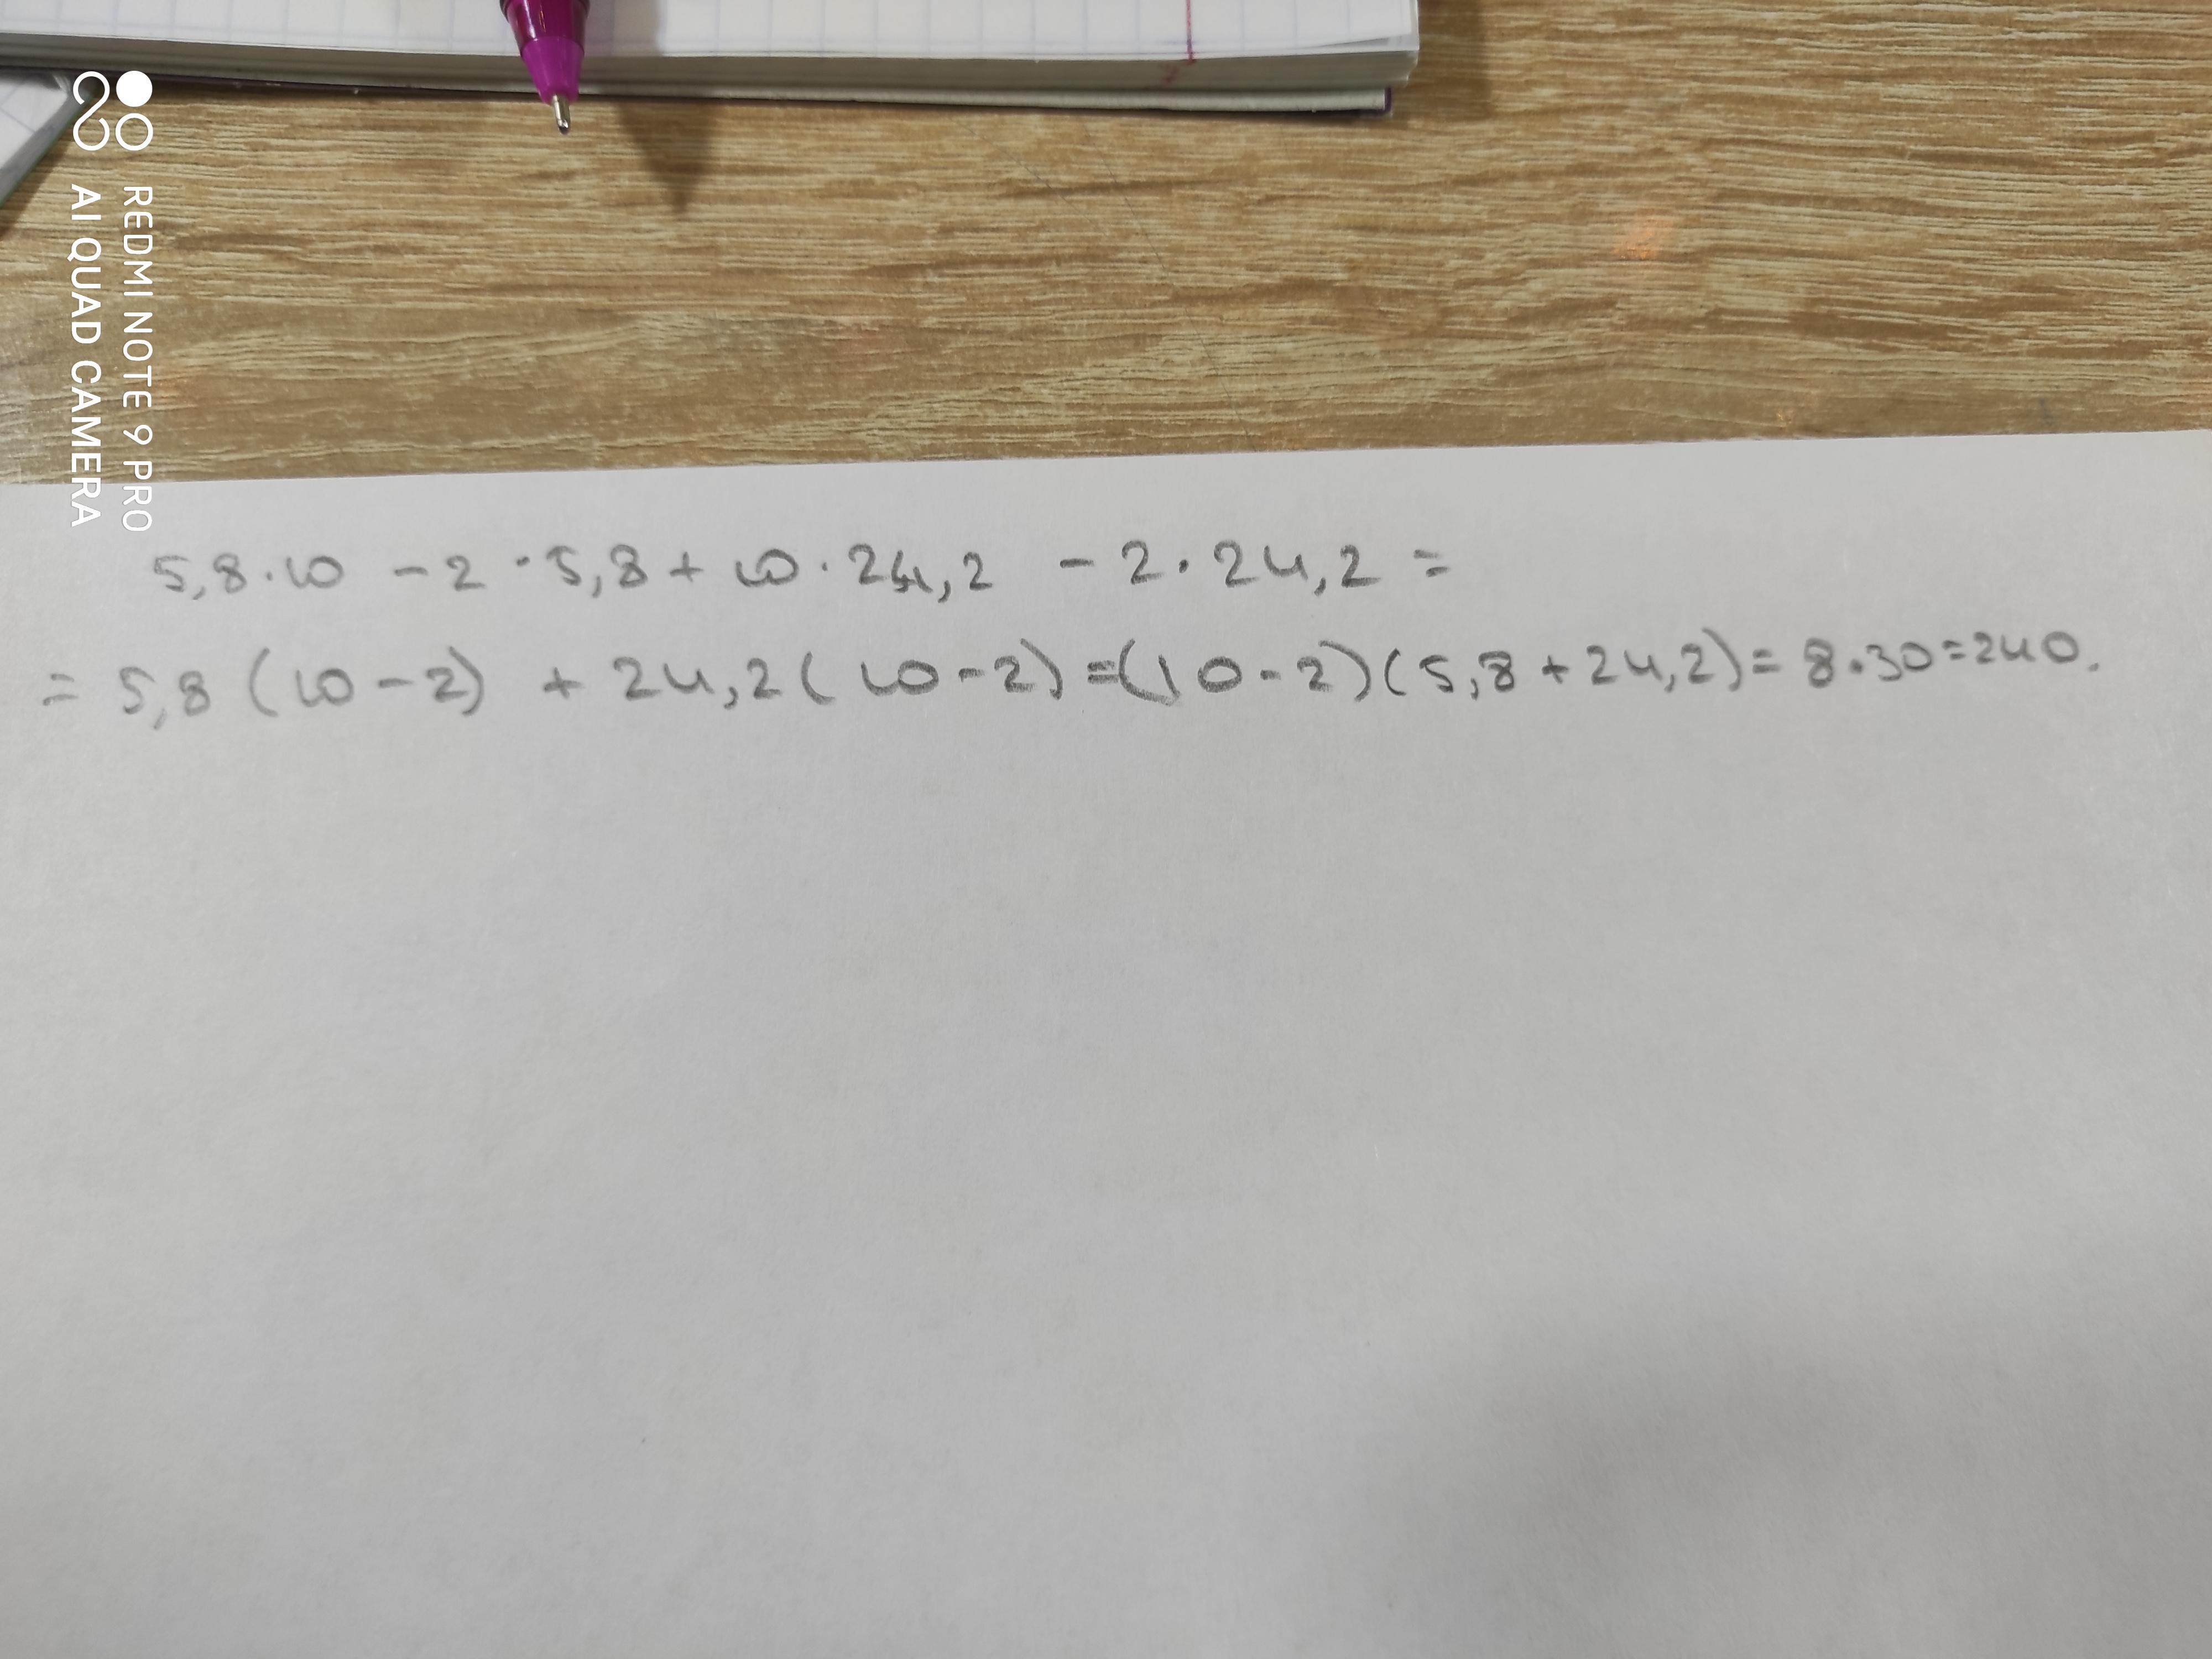 REDMI NOTE 9 PRO
AI QUAD CAMERA
5,8·10 - 2·5,8 + 10·24,2 - 2·24,2 =
= 5,8(10-2) + 24,2(10-2)=(10-2)(5,8+24,2)= 8·30=240.